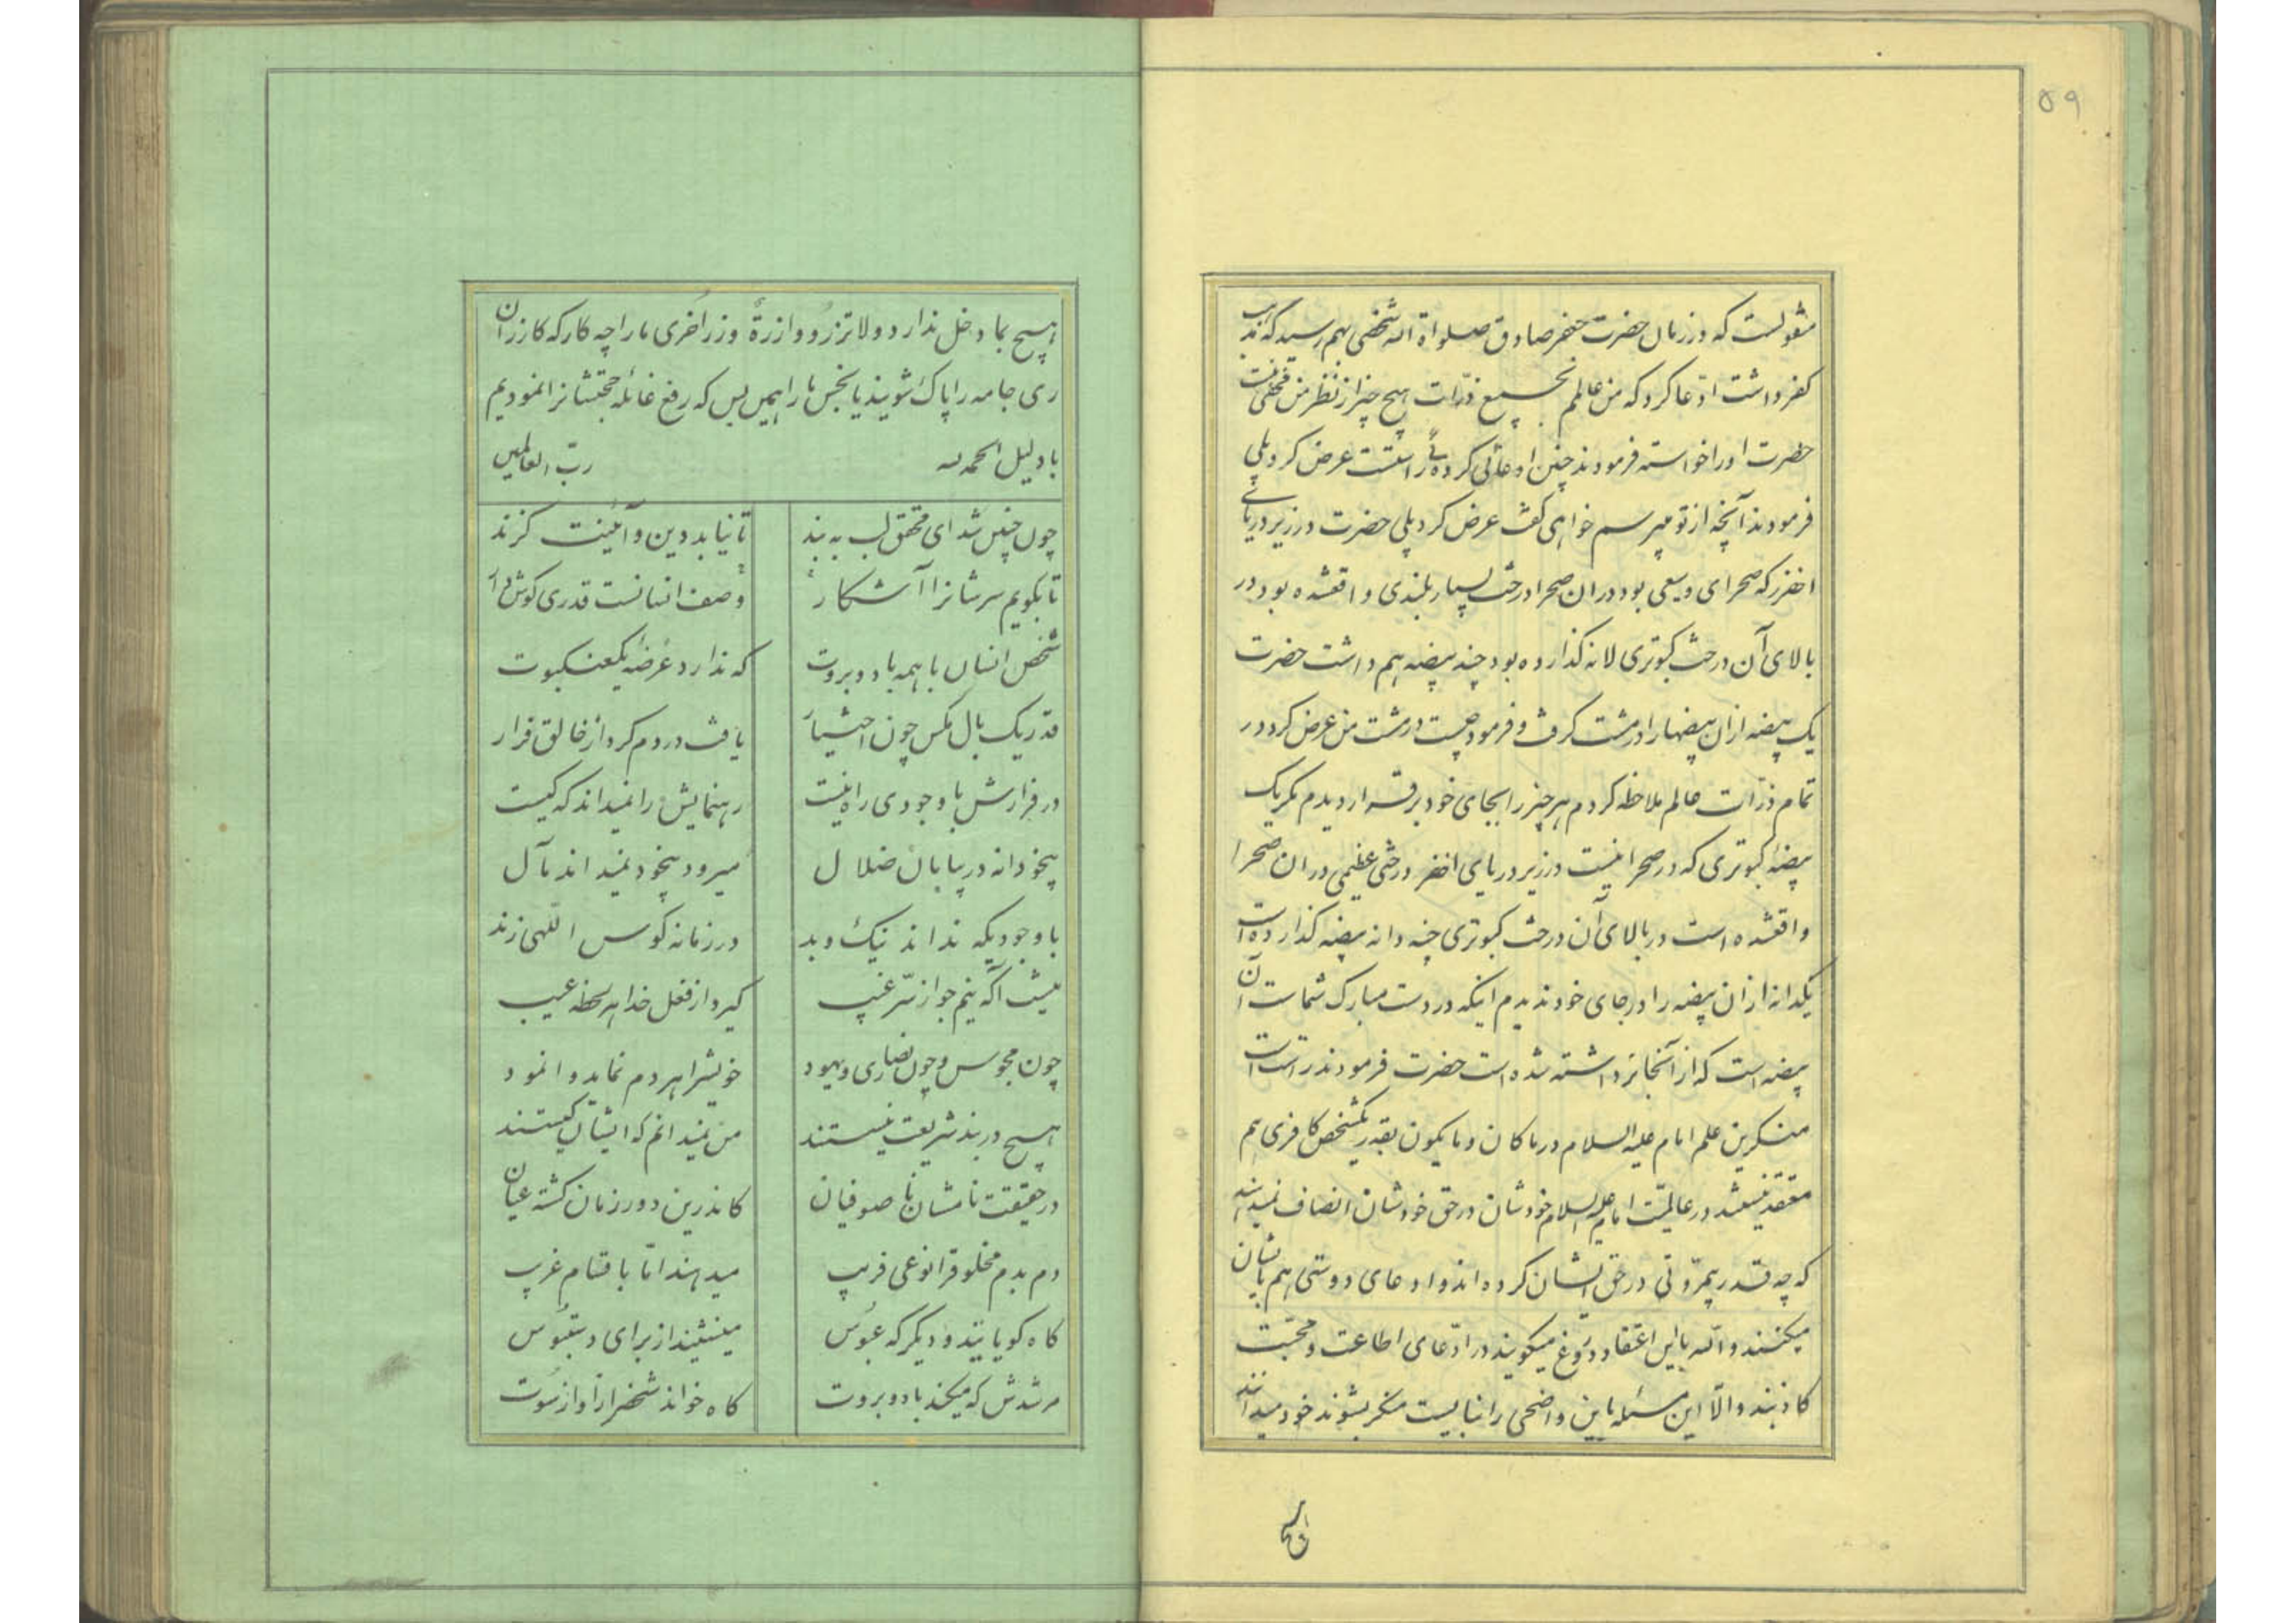 ۵۹
منقولست که در زمان حضرت جعفر صادق صلواة الله شخصی بهم رسید که مذهب
کفر داشت ادّعا کرد که من عالمم بجمیع ذرّات هیچ چیز از نظر من مخفی نیست
حضرت او را خواسته فرمودند چنین ادعائی کردهٔ راستست عرض کرد بلی
فرمودند آنچه از تو میپرسم خواهی گفت عرض کرد بلی حضرت در زیر دریای
اخضر که صحرای وسیعی بود در ان صحرا درخت بسیار بلندی واقعشده بود در
بالای آن درخت کبوتری لانه گذارده بود چند بیضه هم داشت حضرت
یک بیضه از ان بیضها را در مشت گرفت و فرمود چیست در مشت من عرض کرد در
تمام ذرّات عالم ملاحظه کردم هر چیز را بجای خود برقرار دیدم مگر یک
بیضهٔ کبوتری که در صحرائیست در زیر دریای اخضر درختی عظیمی در ان صحرا
واقعشده است در بالای آن درخت کبوتری چند دانه بیضه گذارده است
یکدانه از ان بیضه را در جای خود ندیدم اینکه در دست مبارک شماست آن
بیضه است که از آنجا برداشته شده است حضرت فرمودند راست است
منکرین علم امام علیه السلام در ماکان و مایکون بقدر یکشخص کافری هم
معتقد نیستند در عالمیّت امام علیه السلام خودشان در حق خودشان انصاف نمیدهند
که چه قدر بیمروّتی در حق ایشان کرده اند و ادعای دوستی هم با ایشان
میکنند والله باین اعتقاد دروغ میگویند در ادّعای اطاعت و محبّت
کاذبند و الّا این مسئله باین واضحی را نبایست منکر بشوند خود میدانند
هیچ بما دخل ندارد و لا تزر وازرةٌ وزر اخری ما را چه کار که کازران
ری جامه را پاک شویند یا نجس ما را همین بس که رفع غائله حجتشانرا نمودیم
با دلیل الحمد لله رب العالمین
چون چنین شد ای محقق لب به بند تا نیابد دین و آئینت گزند
تا بگویم سرشانرا آشکار وصف انسانست قدری گوش دار
شخص انسان با همه باد و بروت که ندارد عرضهٔ یکعنکبوت
قدر یک بال مگس چون اختیار یافت در دم کرد از خالق فرار
در فرارش با وجودی راه نیست رهنمایش را نمیداند که کیست
بیخودانه در بیابان ضلال میرود بیخود نمیداند مآل
با وجودیکه نداند نیک و بد در زمانه کوس اللهی زند
نیست آگه نیم جو از سرّ غیب گیرد از فعل خدا هر لحظه عیب
چون مجوس و چون نصاری و یهود خویشرا هر دم نماید وانمود
هیچ در بند شریعت نیستند من نمیدانم که ایشان کیستند
در حقیقت نامشان نا صوفیان کاندرین دور زمان گشته عیان
دم بدم مخلوقرا نوعی فریب میدهند امّا باقسام غریب
گاه گویایند و دیگر که عبوس مینشینند از برای دستبوس
مرشدش که میکند باد و بروت گاه خواند شخصرا ز آواز سوت